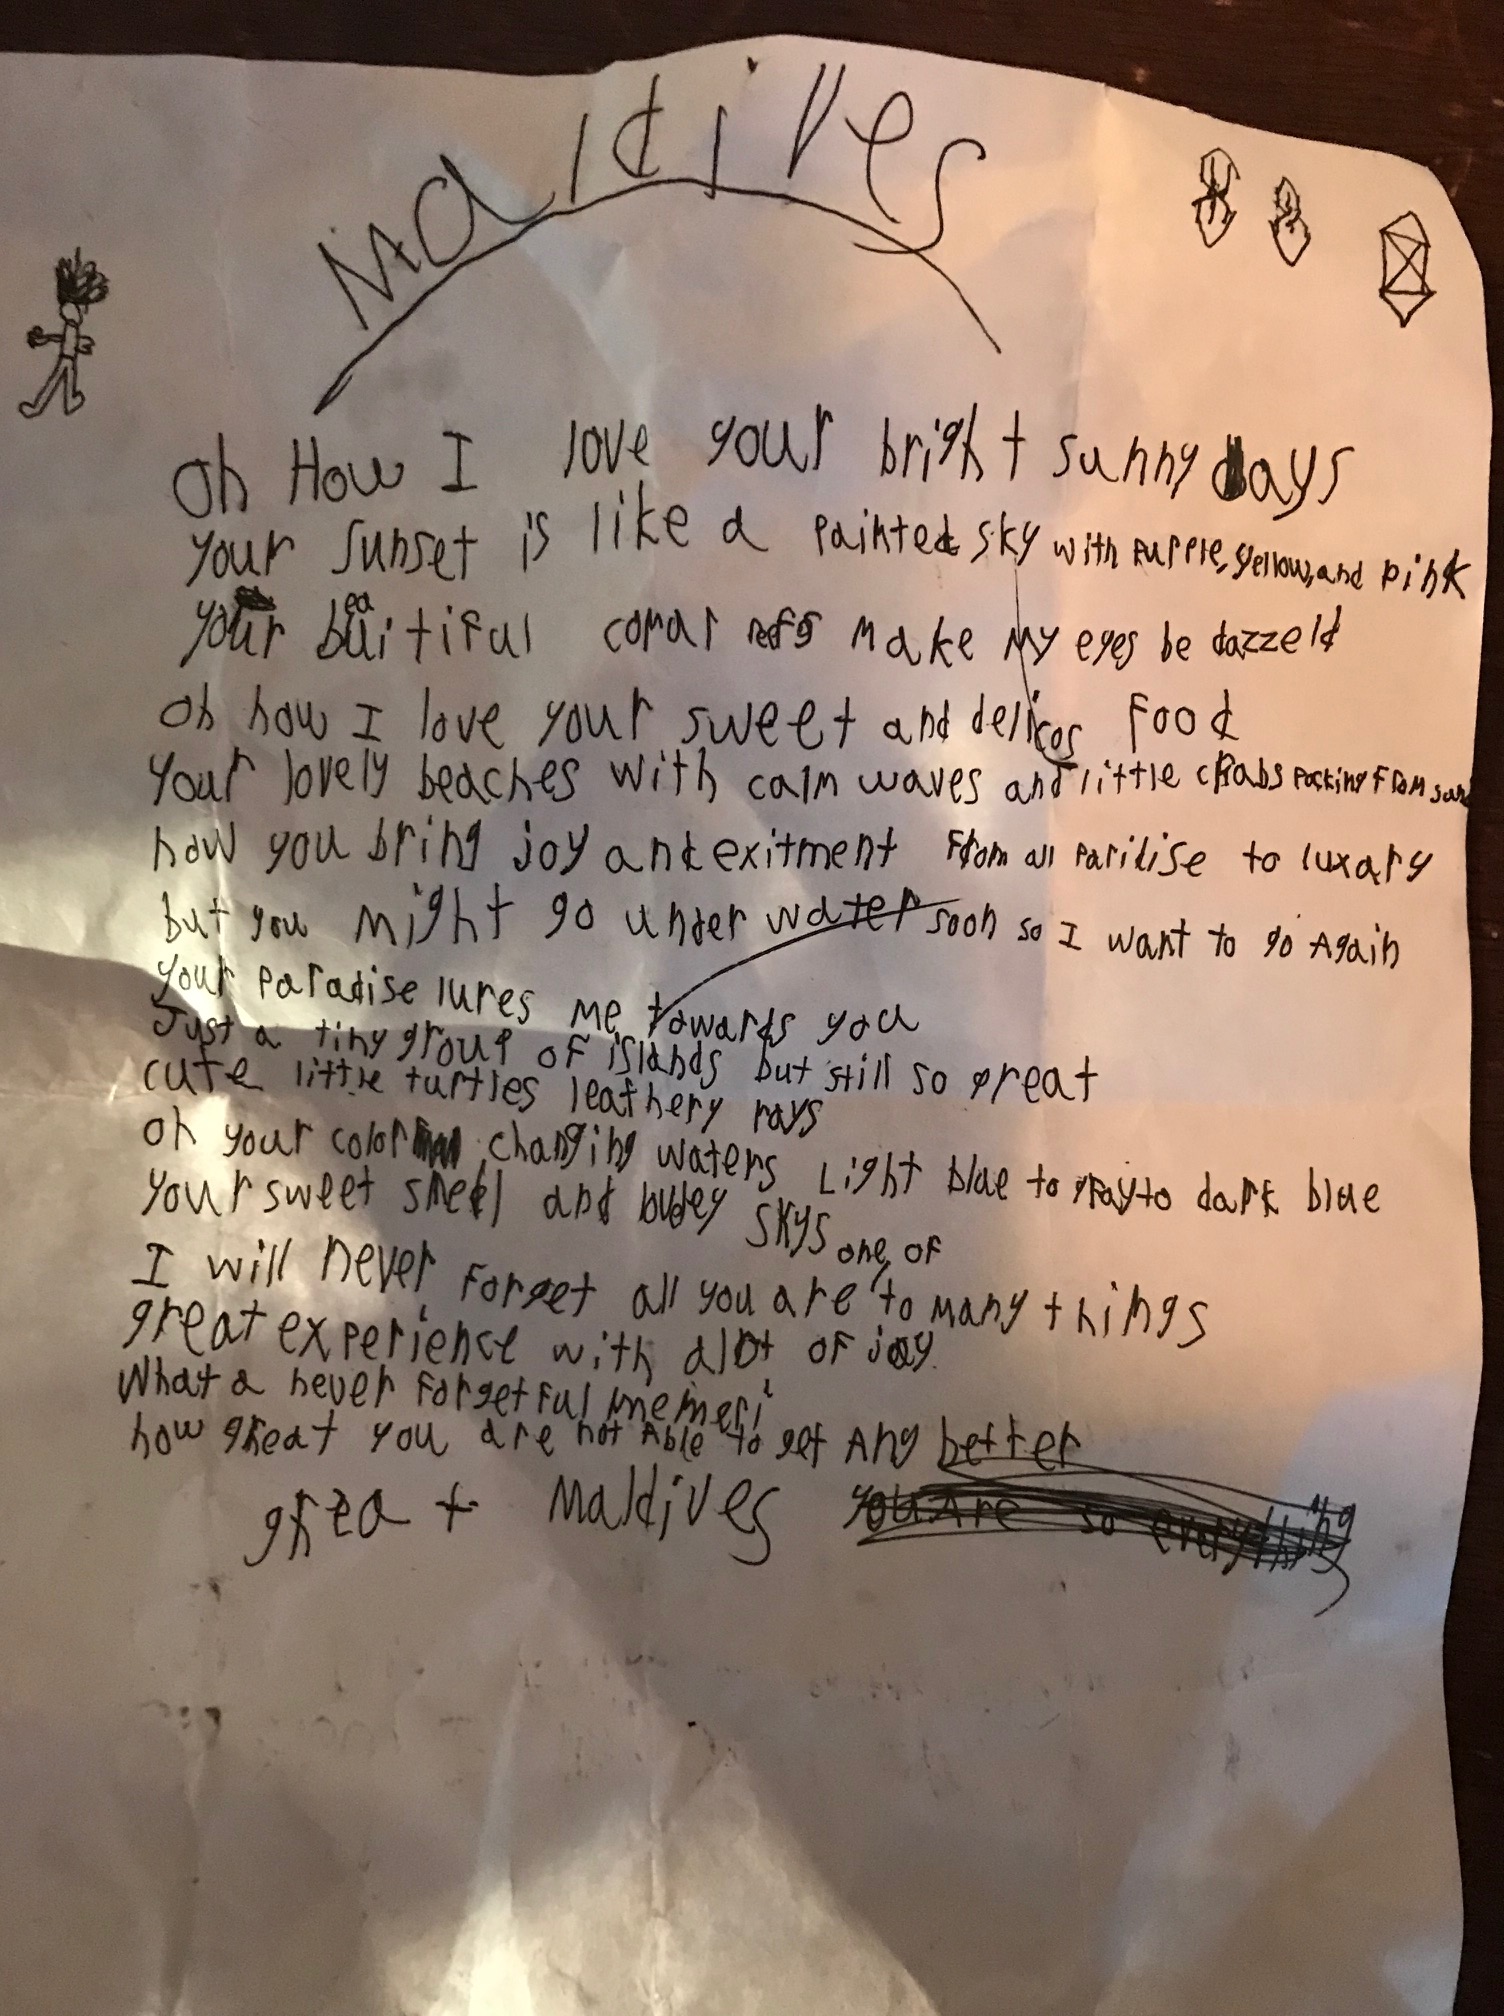 Maldives
Oh How I love your bright sunny days
your sunset is like a painted sky with purple, yellow, and pink
your beautiful coral refs make my eyes be dazzeld
Oh how I love your sweet and delicos food
your lovely beaches with calm waves and little crabs pocking from sand
how you bring joy and exitment from all paridise to luxary
but you might go under water soon so I want to go Again
your paradise lures me towards you
Just a tiny group of islands but still so great
cute little turtles leathery rays
oh your color changing waters Light blue to gray to dark blue
your sweet smell and skys
I will never forget all you are to many things
one of
great experience with alot of joy.
What a never forgetful memeri
how great you are not Able to get Any better
great Maldives you Are so everything